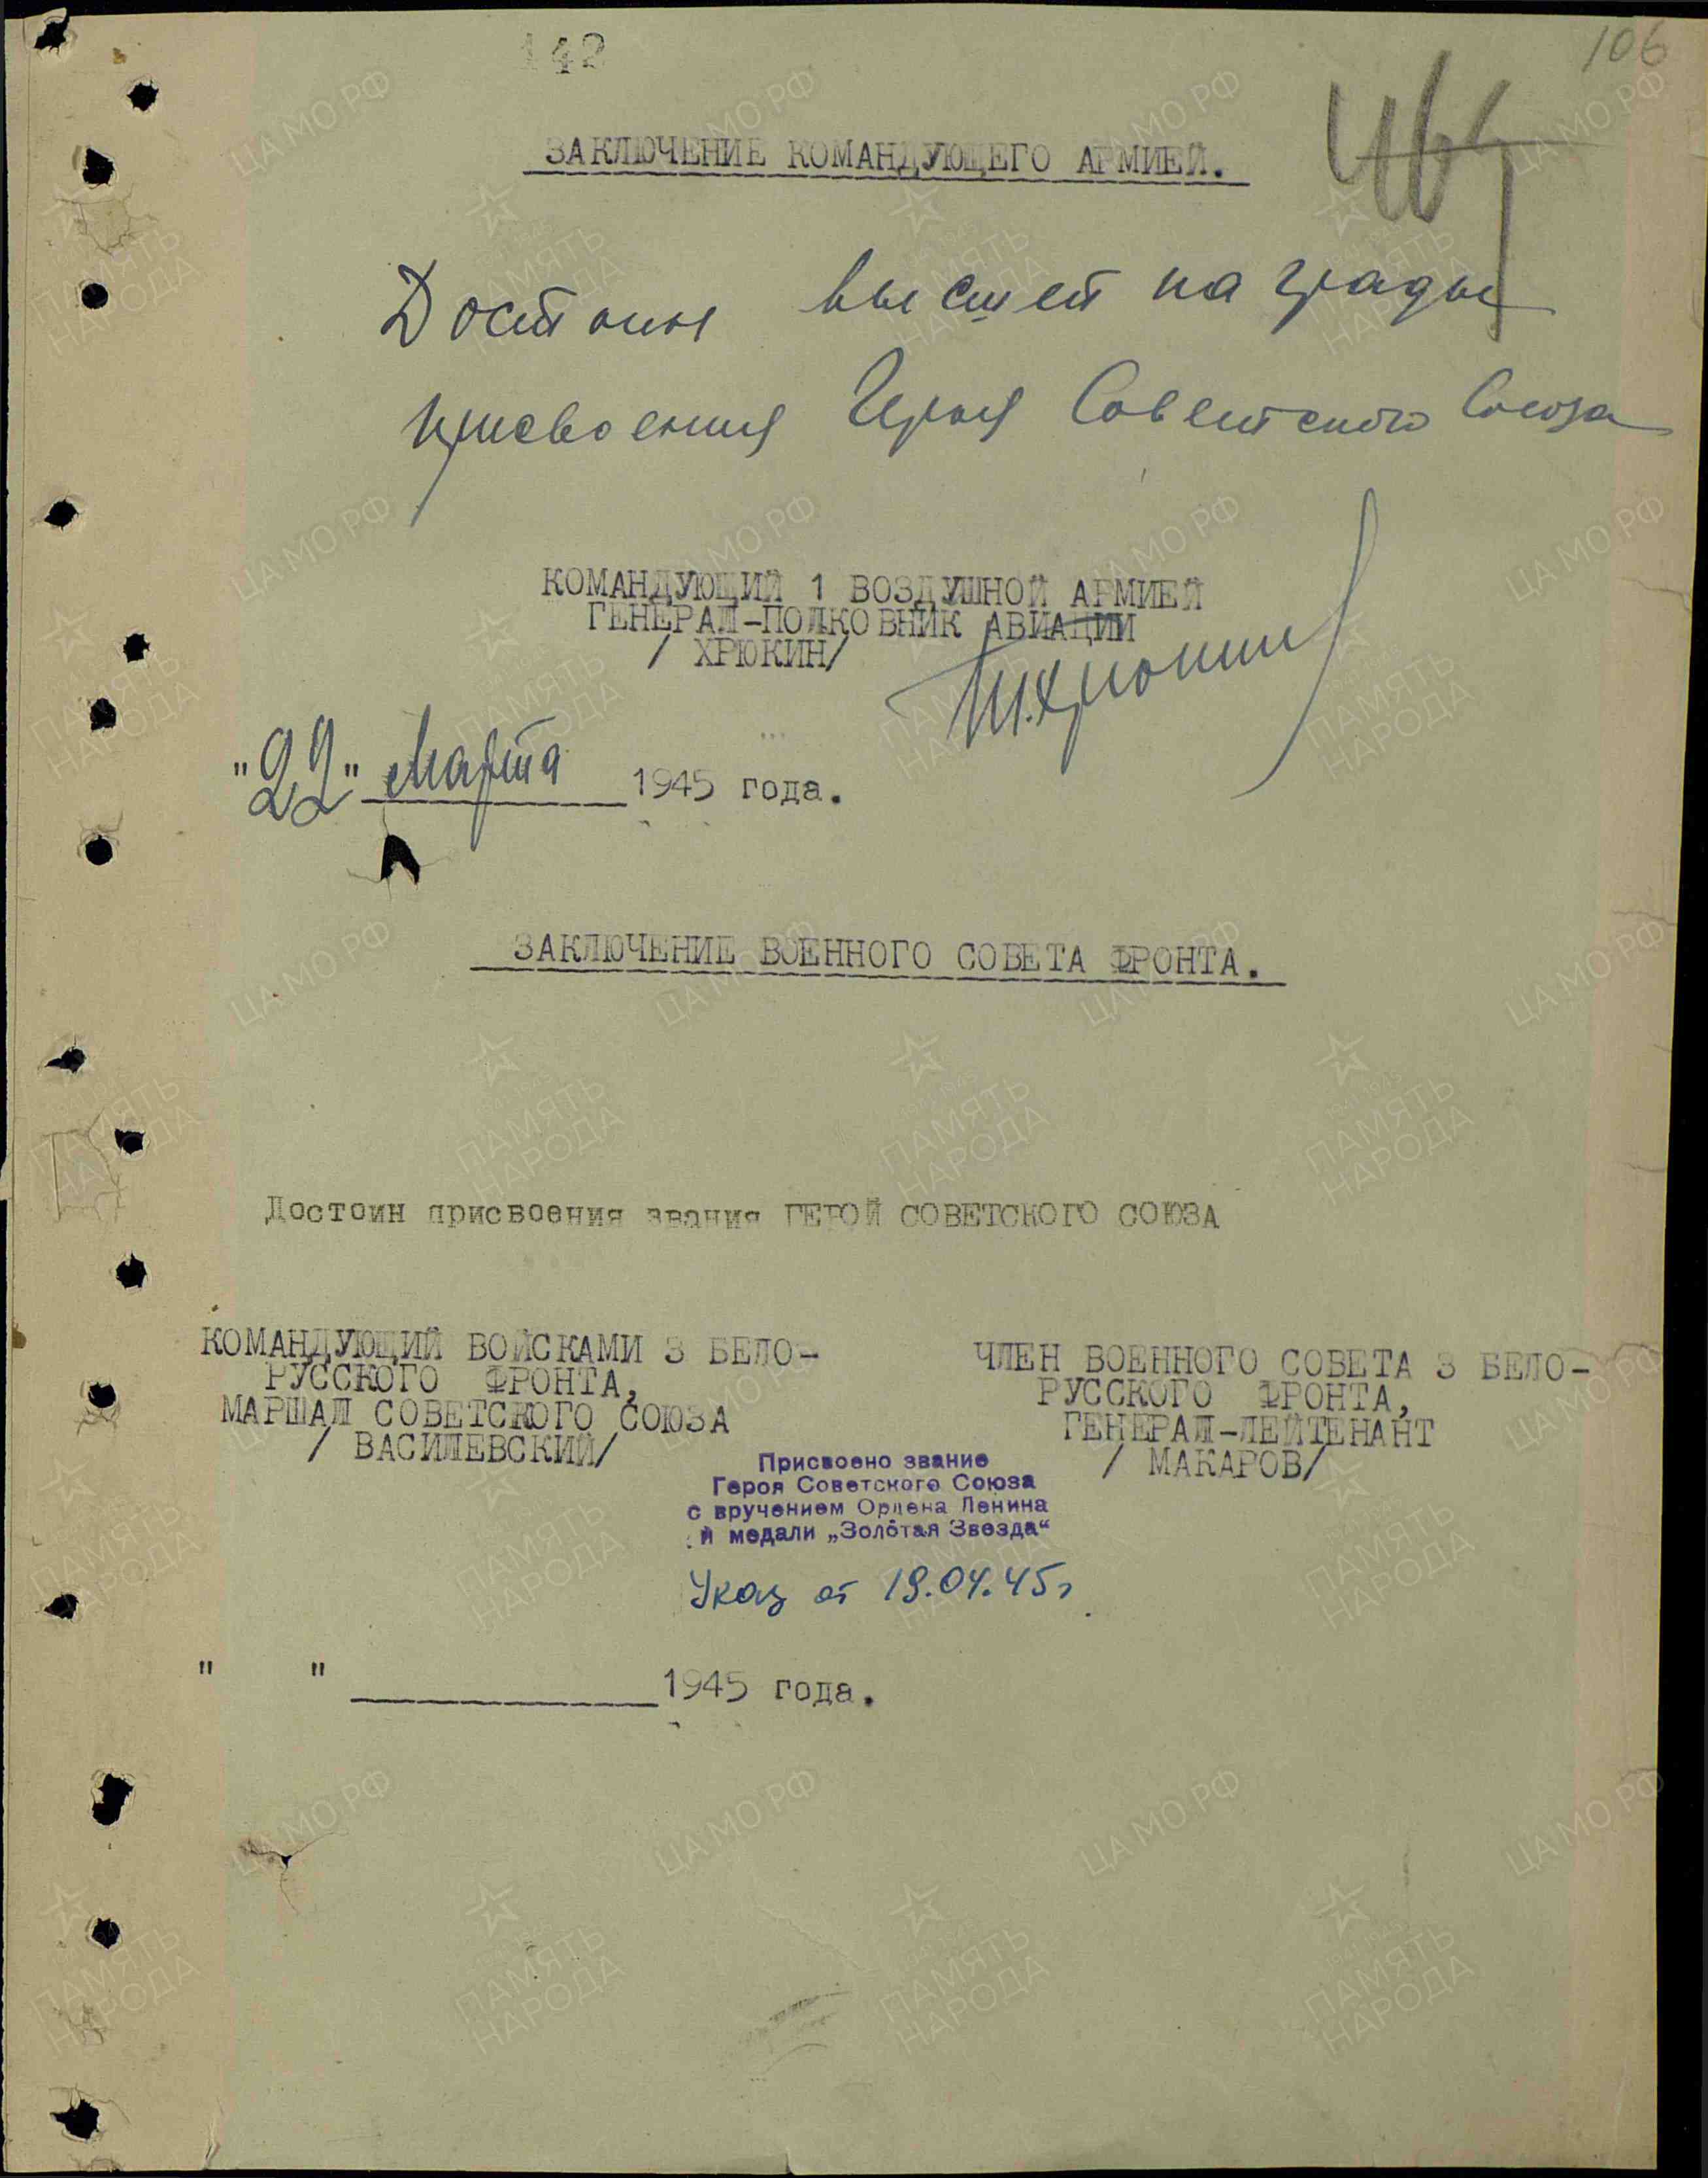 142
106
ЗАКЛЮЧЕНИЕ КОМАНДУЮЩЕГО АРМИЕЙ.
Достоин высшей награды
присвоения Героя Советского Союза
КОМАНДУЮЩИЙ 1 ВОЗДУШНОЙ АРМИЕЙ
ГЕНЕРАЛ-ПОЛКОВНИК АВИАЦИИ
/ ХРЮКИН/
Т.Хрюкин
"22" Марта 1945 года.
ЗАКЛЮЧЕНИЕ ВОЕННОГО СОВЕТА ФРОНТА.
Достоин присвоения звания ГЕРОЙ СОВЕТСКОГО СОЮЗА
КОМАНДУЮЩИЙ ВОЙСКАМИ 3 БЕЛО-
РУССКОГО ФРОНТА,
МАРШАЛ СОВЕТСКОГО СОЮЗА
/ ВАСИЛЕВСКИЙ/
ЧЛЕН ВОЕННОГО СОВЕТА 3 БЕЛО-
РУССКОГО ФРОНТА,
ГЕНЕРАЛ-ЛЕЙТЕНАНТ
/ МАКАРОВ/
Присвоено звание
Героя Советского Союза
с вручением Ордена Ленина
и медали „Золотая Звезда“
Указ от 19.04.45г
" " 1945 года.
ЦА МО РФ
ПАМЯТЬ
НАРОДА